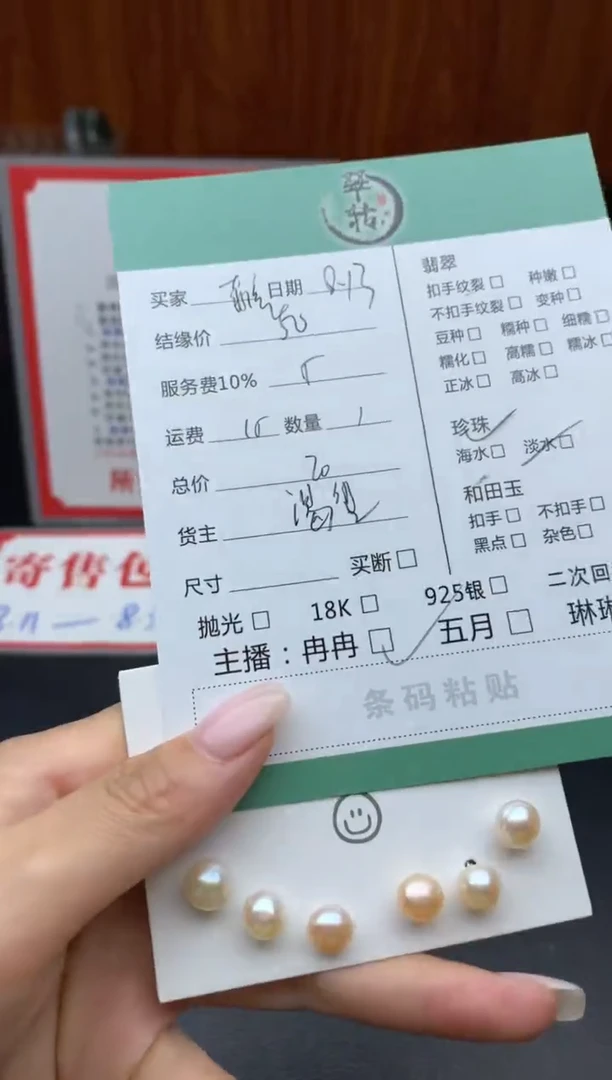 翠
买家 日期 8-13
结缘价 50
服务费10% 5
运费 15 数量 1
总价 70
货主
尺寸 买断
抛光 18K 925银 二次回
主播：冉冉 五月 琳琳
条码粘贴
翡翠
扣手纹裂 种嫩
不扣手纹裂 变种
豆种 糯种 细糯
糯化 高糯 糯冰
正冰 高冰
珍珠
海水 淡水
和田玉
扣手 不扣手
黑点 杂色
寄售包